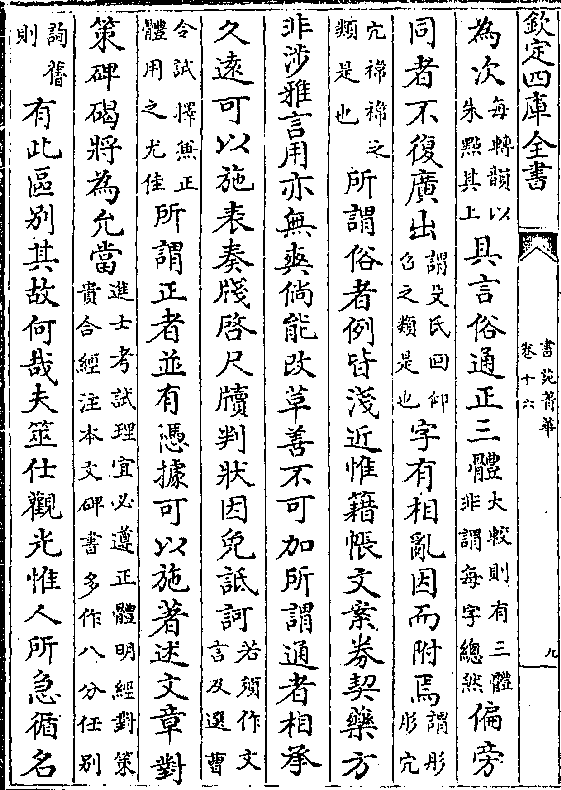 欽定四庫全書
書苑菁華
卷十六
九
為次每轉韻以朱點其上具言俗通正三體大較則有三體非謂每字總然偏旁
同者不復廣出謂殳氏回仰召之類是也字有相亂因而附焉謂彤肜宂
宂禕禕之類是也所謂俗者例皆淺近惟籍帳文案券契藥方
非涉雅言用亦無爽倘能改革善不可加所謂通者相承
久遠可以施表奏牋啓尺牘判狀因免詆訶若須作文言及選曹
合試擇無正體用之尤佳所謂正者並有憑據可以施著述文章對
策碑碣將為允當進士考試理宜必遵正體明經對策貴合經注本文碑書多作八分任別
詢舊則有此區別其故何哉夫筮仕觀光惟人所急循名